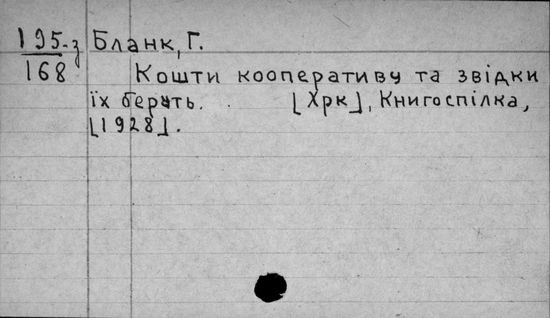 195-з Бланк, Г.
168
Кошти кооперативу та звідки
їх беруть. [Хрк], Книгоспілка,
[1928].